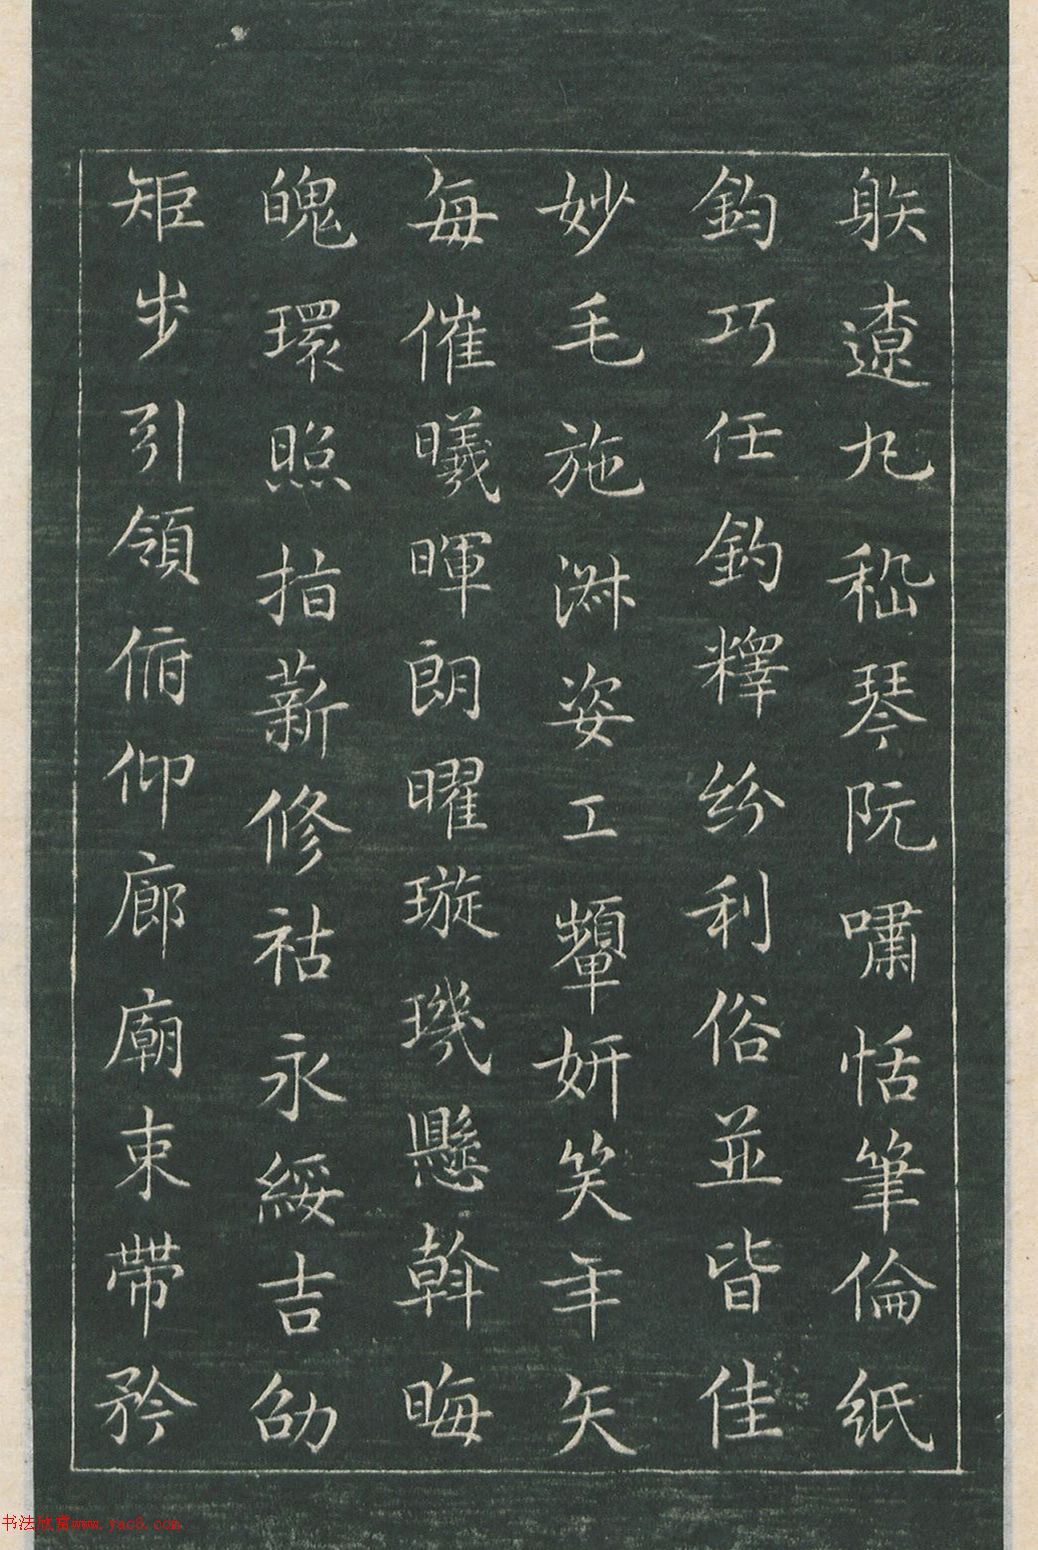 躲遼丸嵇琴阮嘯恬筆倫紙
鈞巧任釣釋紛利俗並皆佳
妙毛施淑姿工顰妍笑年矢
每催曦暉朗曜璇璣懸斡晦
魄環照指薪修祜永綏吉劭
矩步引領俯仰廊廟束帶矜
书法欣赏www.yac8.com